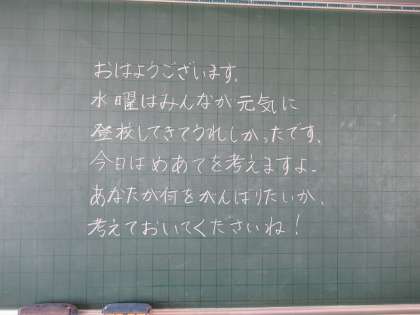 おはようございます。
水曜はみんなが元気に
登校してきてうれしかったです。
今日はめあてを考えますよ。
あなたが何をがんばりたいか、
考えておいてくださいね！